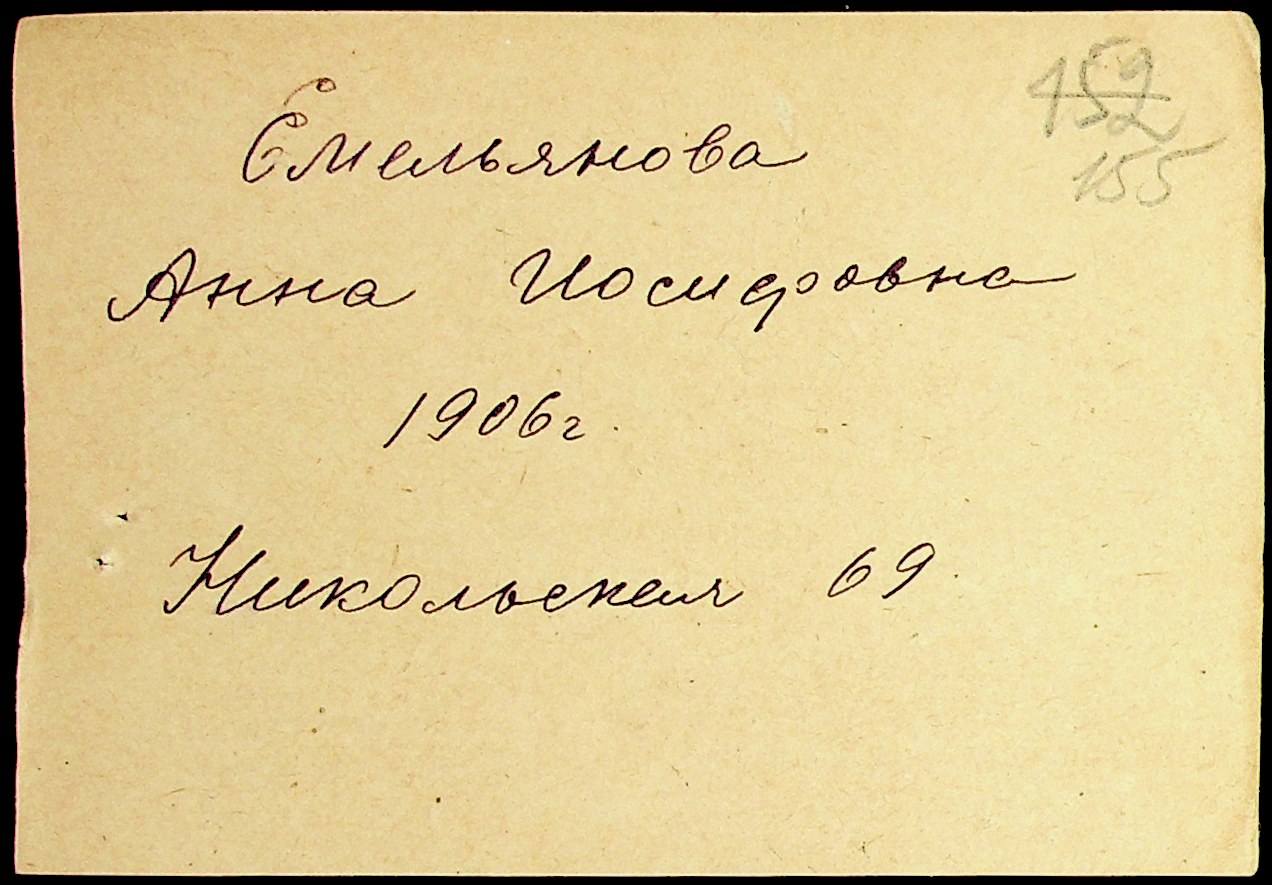 Емельянова
155
Анна Иосифовна
1906г.
Никольская 69.